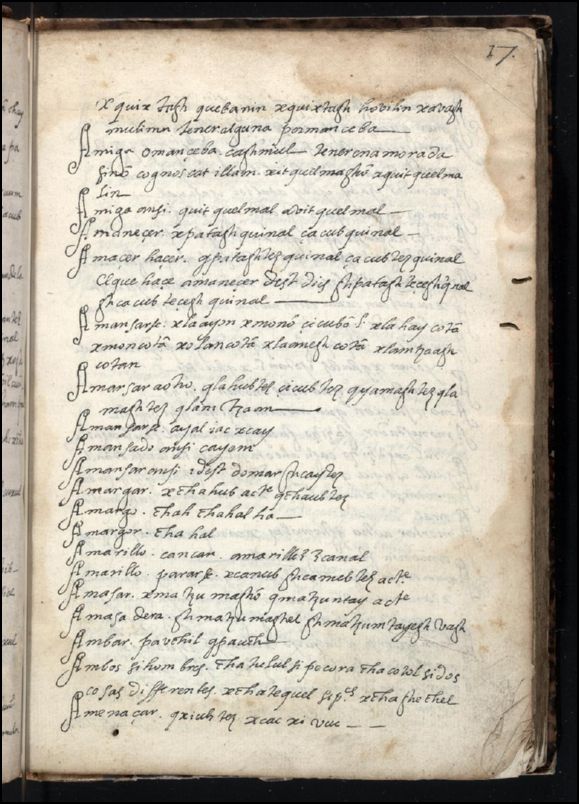 17.
x quix tash quebanin xquixtash hobihn xavash
mulimin tener alguna por manceba
Amiga o manceba. cashmul tener enamorada
sino cognoscat illam. xit quelmashi xquit quelma
lin
Amiga ansi. quit quelmal doit quelmal
Amaneçer. xpatash quinal ca cub quinal
Amaçer haçer. qpatashtez quinal ca cub tez quinal
el que haçe amaneçer dest dios shpatash teçesh qnal
sh ca cub teçesh quinal
Amansarse. xlaayon xmono çicubô xlahay cotâ
xmon cotâ xolan cotâ xlamesh cotâ xlamhash
cotan
Amansar a otro. qlahubtez çicubtez qyamashtez qla
mashtez qlam haan
Amansarse. ayal iac xcay
Amansado ansi cayem
Amansar ansi idest domar shcaytez
Amargar. xchahub acte qchaubtez
Amargo. chah chahal ha
Amargor. chahal
Amarillo. cancan. amarillez canal
Amarillo. pararse. xcanub shcanubtez acte
Amasar. xmatzu mashô qmatzuntay acte
Amasadera. shmatzumashel shmatzumtayesh vash
Ambar. pauchil qpauch
Ambos si hombres. chatelul si pecora chacotol si dos
cosas differentes. xchatequel xchashechel
Amenaçar. qxiuhtez xcac xi vuc